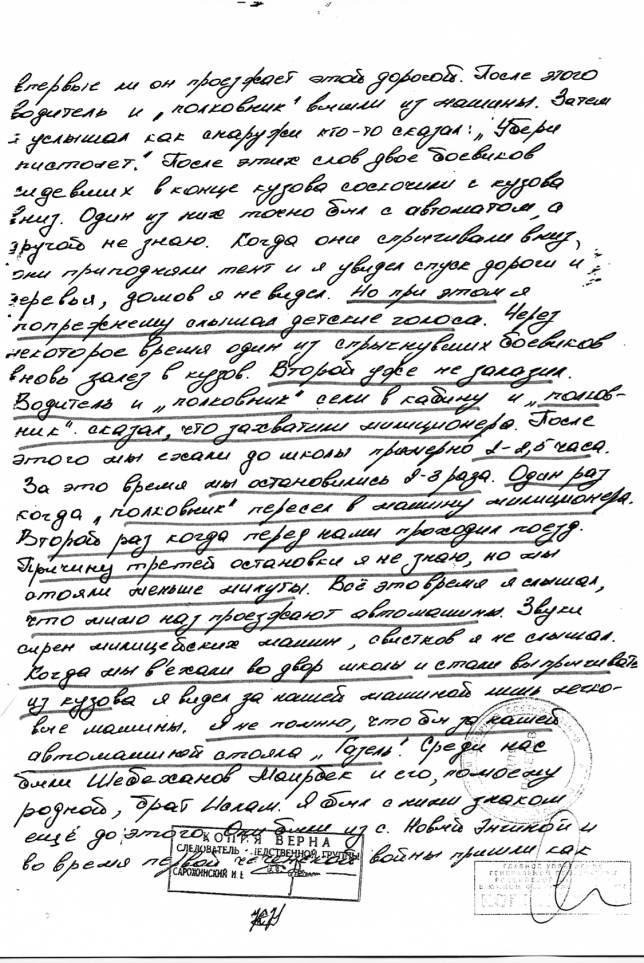 впервые ли он проезжает этой дорогой. После этого
водитель и „полковник" вышли из машины. Затем
я услышал как снаружи кто-то сказал: „Убери
пистолет." После этих слов двое боевиков
сидевших в конце кузова соскочили с кузова
вниз. Один из них точно был с автоматом, а
другой не знаю. Когда они спрыгивали вниз,
они приподняли тент и я увидел спуск дороги и
деревья, домов я не видел. Но при этом я
попрежнему слышал детские голоса. Через
некоторое время один из спрыгнувших боевиков
вновь залез в кузов. Второй уже не залазил.
Водитель и „полковник" сели в кабину и „полков-
ник" сказал, что захватили милиционера. После
этого мы ехали до школы примерно 2-2,5 часа.
За это время мы остановились 2-3 раза. Один раз
когда „полковник" пересел в машину милиционера.
Второй раз когда перед нами проходил поезд.
Причину третей остановки я не знаю, но мы
стояли меньше минуты. Всё это время я слышал,
что мимо нас проезжают автомашины. Звуки
сирен милицейских машин, свистков я не слышал.
Когда мы въехали во двор школы и стали выпрыгивать
из кузова я видел за нашей машиной лишь легко-
вые машины. Я не помню, что бы за нашей
автомашиной стояла „Газель". Среди нас
были Шебаханов Маирбек и его, помоему
родной, брат Ислам. Я был с ними знаком
ещё до этого. Они были из с. Новый Энгиной и
во время первой чеченской войны пришли как
КОПИЯ ВЕРНА
СЛЕДОВАТЕЛЬ СЛЕДСТВЕННОЙ ГРУППЫ
САРОЖИНСКИЙ И.Е